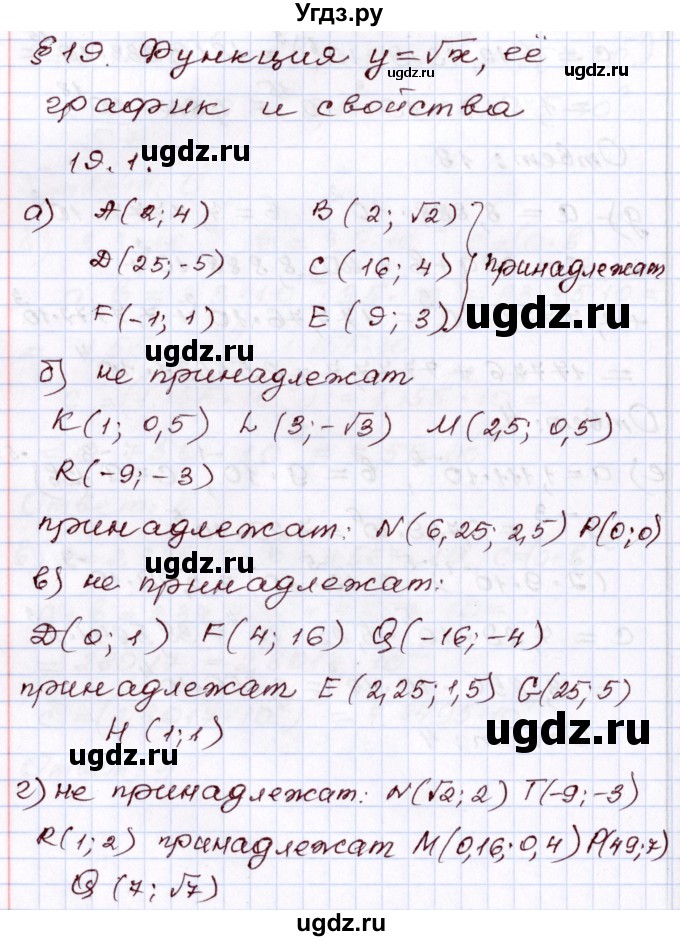 Угдз.ру
§ 19. Функция y=√x, её
график и свойства
19.1.
а) A(2; 4) B(2; √2)
D(25; -5) C(16; 4) } принадлежат
F(-1; 1) E(9; 3)
б) не принадлежат
K(1; 0,5) L(3; -√3) M(2,5; 0,5)
R(-9; -3)
принадлежат: N(6,25; 2,5) P(0; 0)
в) не принадлежат:
D(0; 1) F(4; 16) Q(-16; -4)
принадлежат E(2,25; 1,5) G(25; 5)
H(1; 1)
г) не принадлежат: N(√2; 2) T(-9; -3)
R(1; 2) принадлежат M(0,16; 0,4) P(49; 7)
Q(7; √7)
ugdz.ru
ugdz.ru
ugdz.ru
ugdz.ru
ugdz.ru
ugdz.ru
ugdz.ru
ugdz.ru
ugdz.ru
ugdz.ru
ugdz.ru
ugdz.ru
ugdz.ru